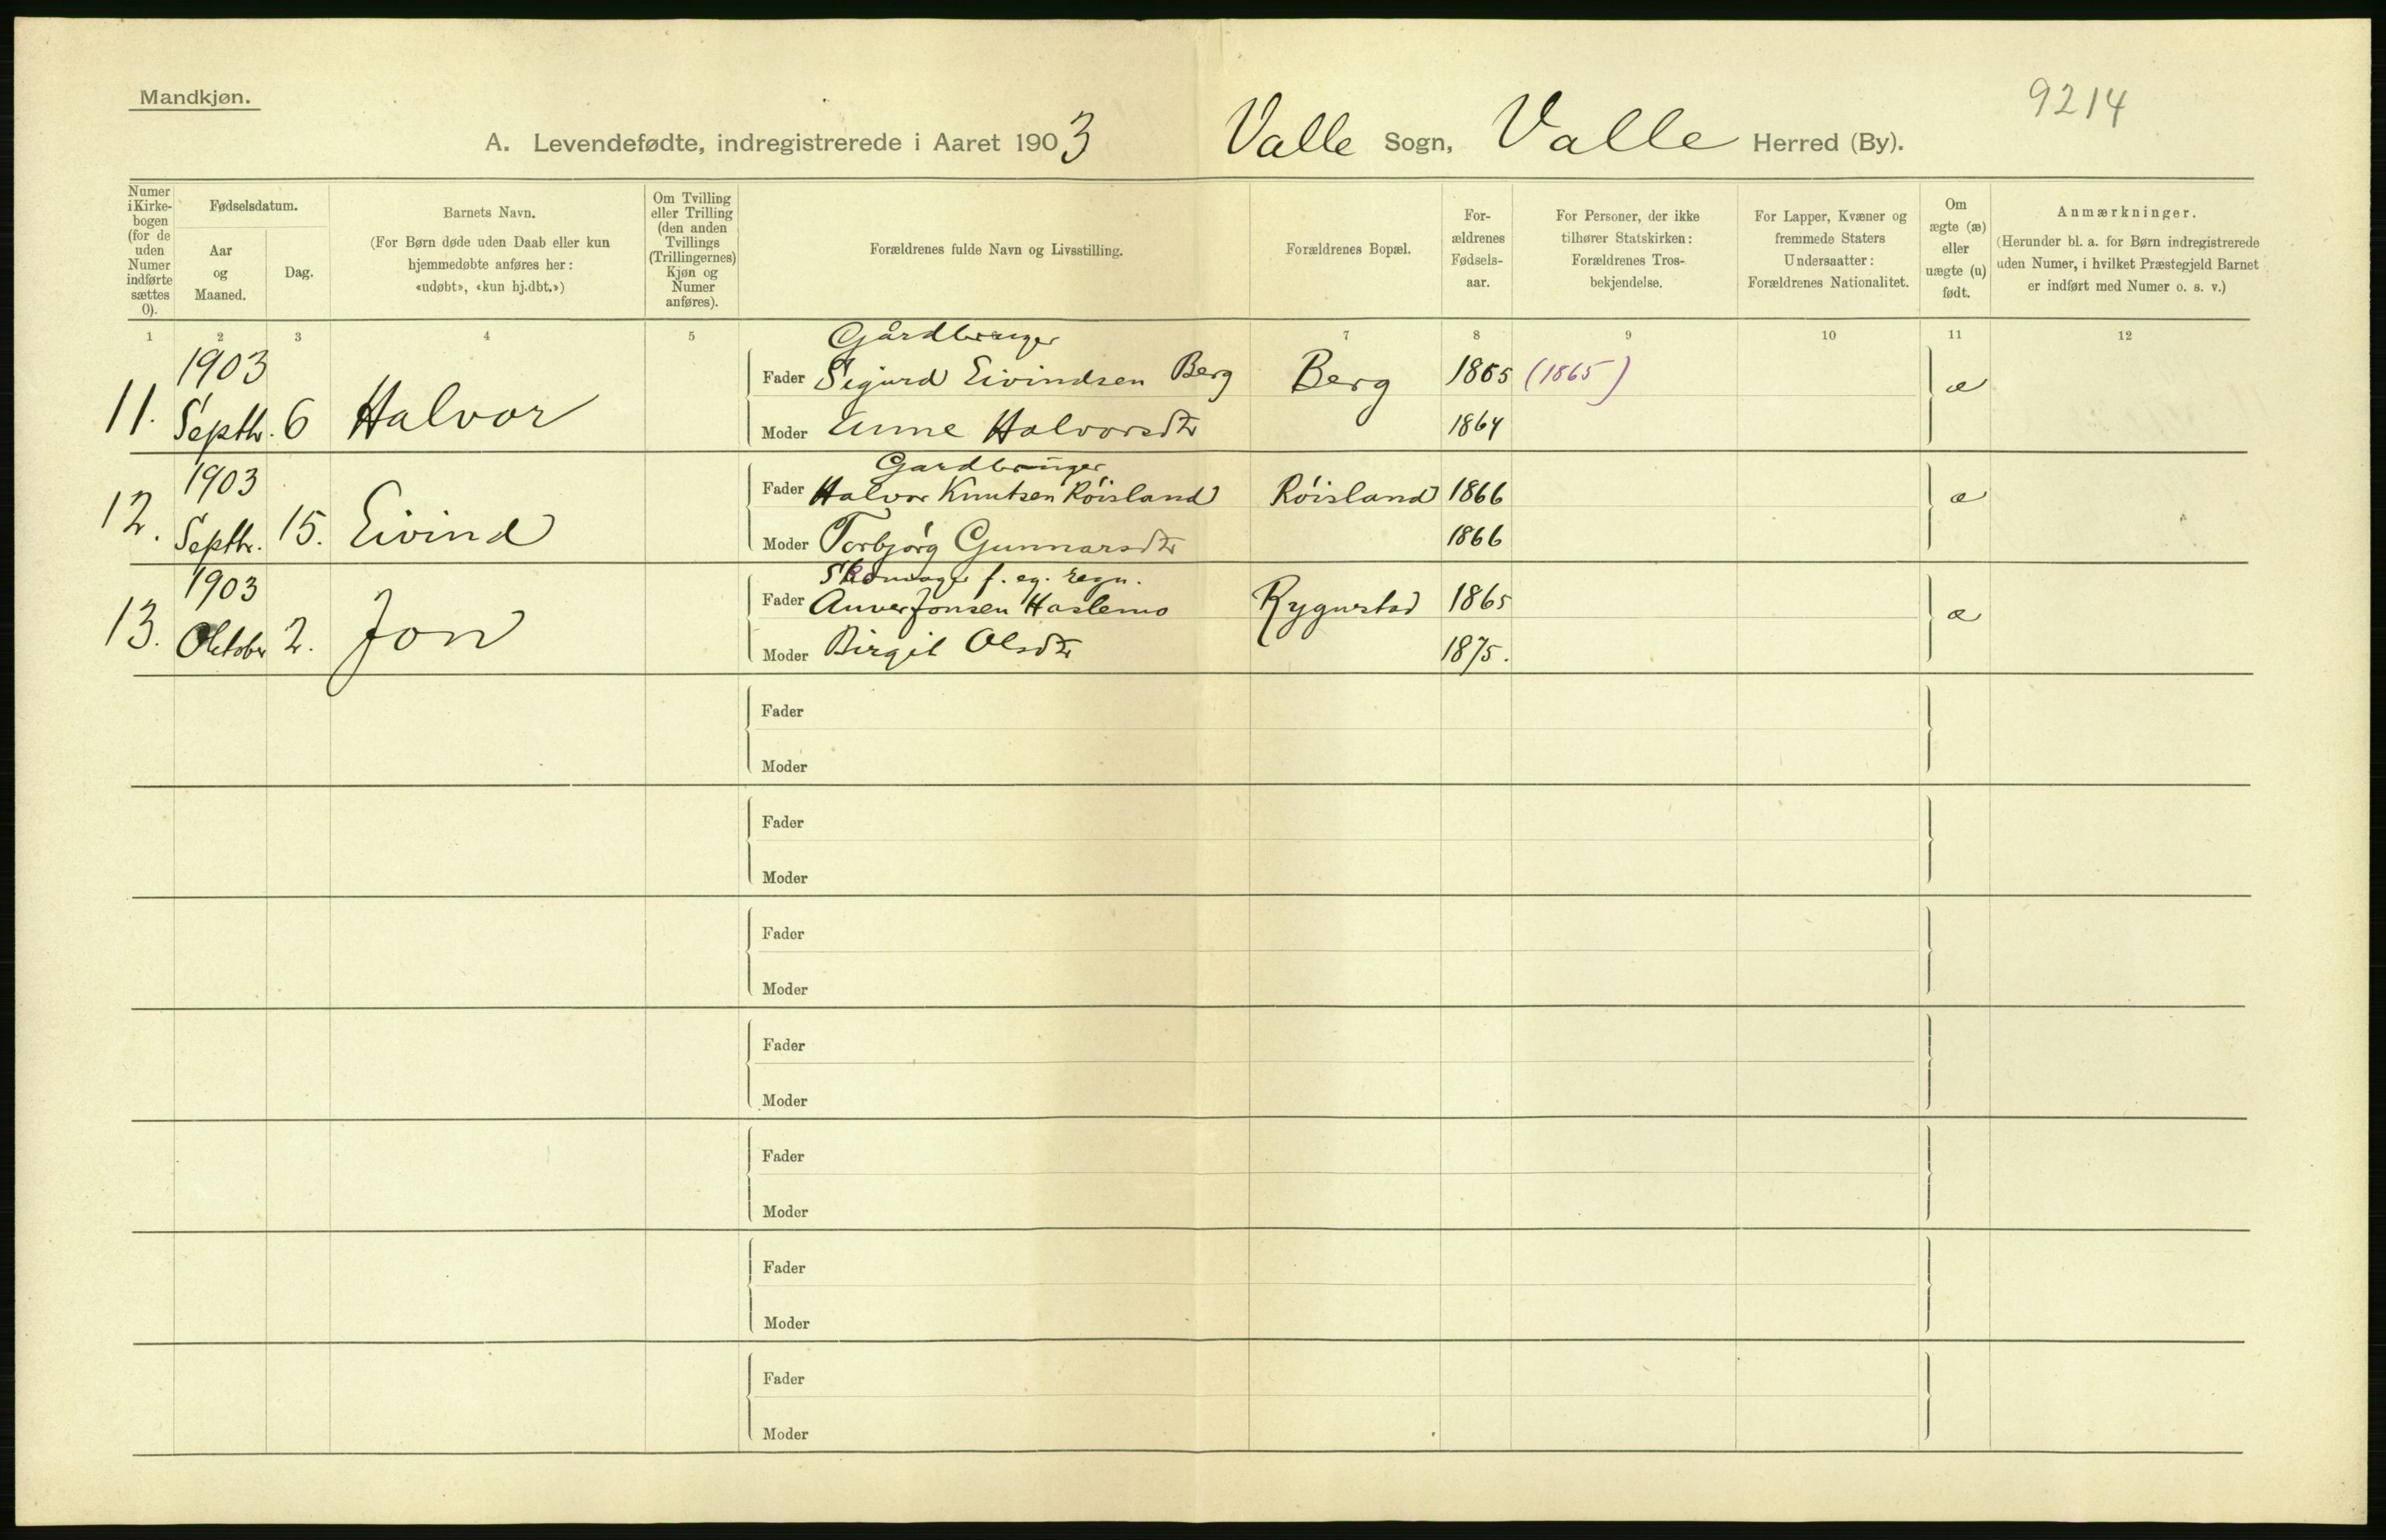 Mandkjøn.
9214
A. Levendefødte, indregistrerede i Aaret 1903 Valle Sogn, Valle Herred (By).
Numer i Kirke-bogen (for de uden Numer indførte sættes 0).
Fødselsdatum.
Aar og Maaned.
Dag.
Barnets Navn.
(For Børn døde uden Daab eller kun
hjemmedøbte anføres her:
«udøbt», «kun hj.dbt.»)
Om Tvilling
eller Trilling
(den anden
Tvillings
(Trillingernes)
Kjøn og
Numer
anføres).
Forældrenes fulde Navn og Livsstilling.
Forældrenes Bopæl.
For-
ældrenes
Fødsels-
aar.
For Personer, der ikke
tilhører Statskirken:
Forældrenes Tros-
bekjendelse.
For Lapper, Kvæner og
fremmede Staters
Undersaatter:
Forældrenes Nationalitet.
Om
ægte (æ)
eller
uægte (u)
født.
Anmærkninger.
(Herunder bl. a. for Børn indregistrerede
uden Numer, i hvilket Præstegjeld Barnet
er indført med Numer o. s. v.)
1 2 3 4 5 7 8 9 10 11 12
Gårdbruger
1903
Fader Sigurd Eivindsen Berg Berg 1865 (1865) æ
11. Septbr. 6 Halvor
Moder Anne Halvorsdtr 1864
Gardbruger
1903
Fader Halvor Knutsen Röisland Röisland 1866 æ
12. Septbr. 15. Eivind
Moder Torbjörg Gunnarsdtr 1866
Skomager f. eg. regn.
1903
Fader Anver Jonsen Haslemo Rygnestad 1865 æ
13. Oktober 2. Jon
Moder Birgit Olsdtr 1875.
Fader
Moder
Fader
Moder
Fader
Moder
Fader
Moder
Fader
Moder
Fader
Moder
Fader
Moder